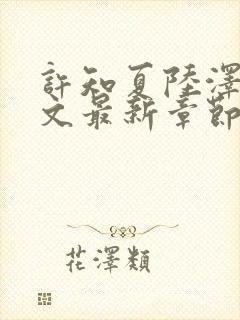 許知夏陸澤
文最新章節
花澤類